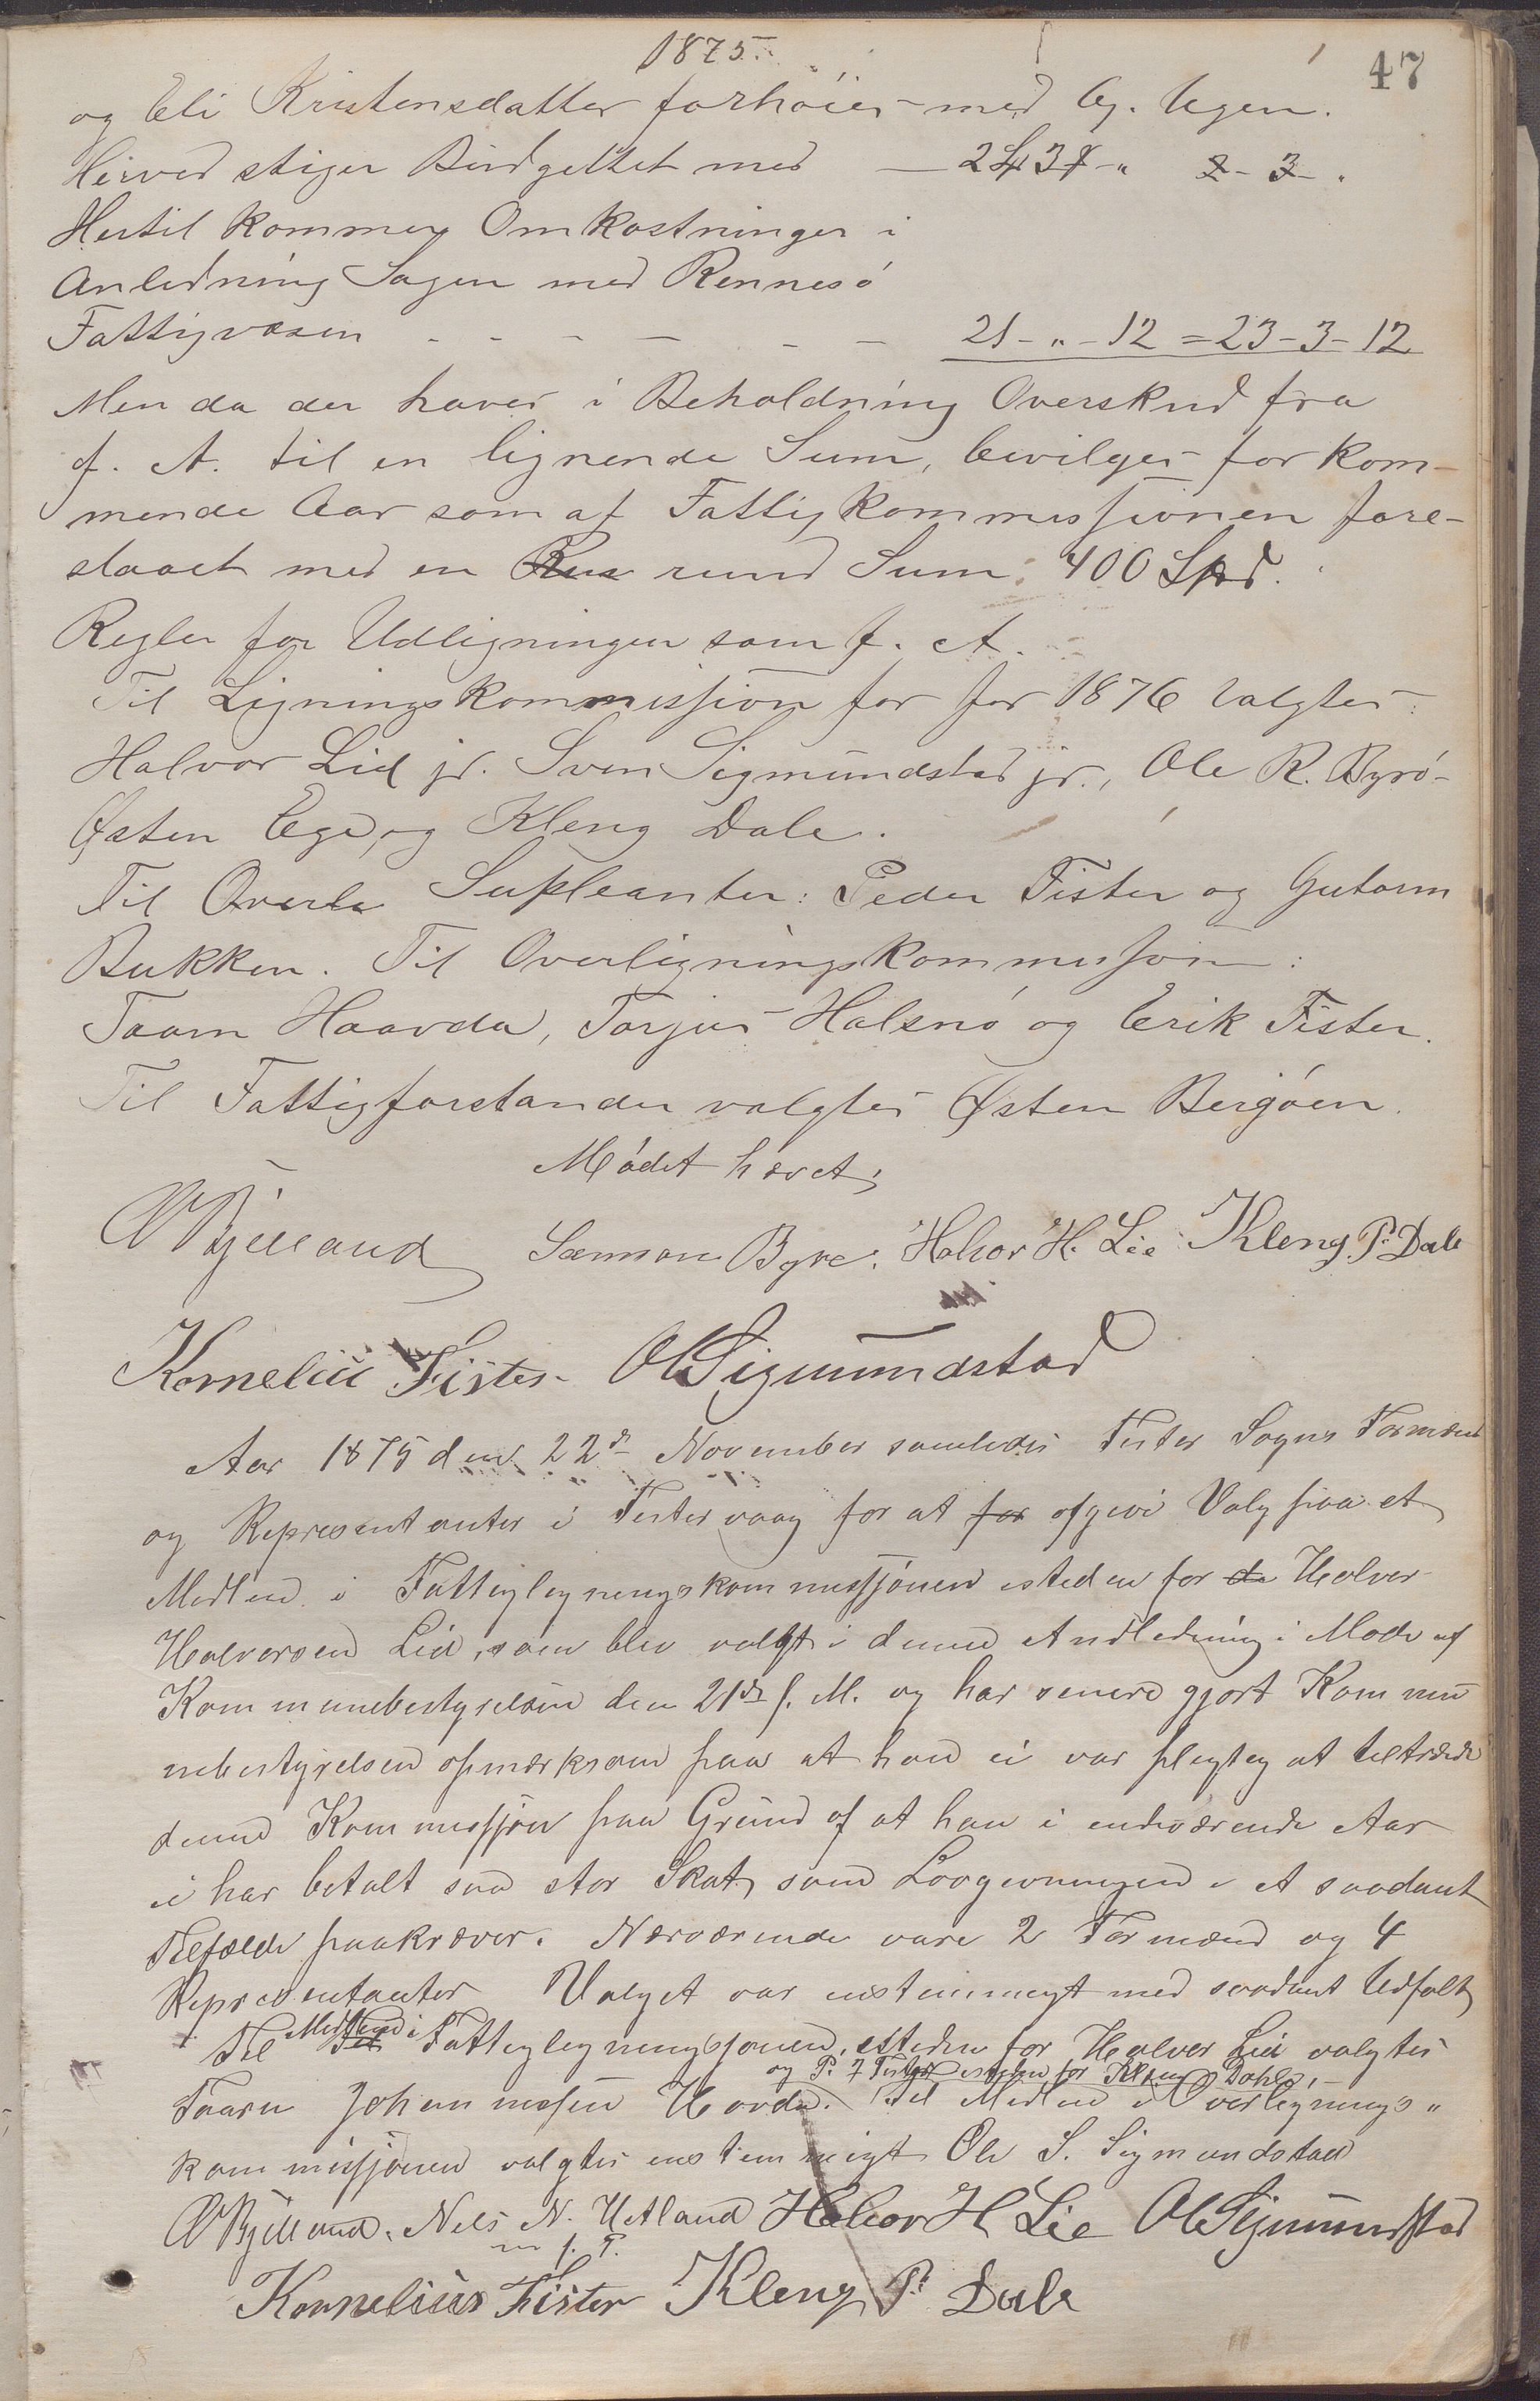 1875.
47
og Eli Kristensdatter forhøies med
Herved stiger Budgettet med — 2 - 3 - "
Hertil kommer Omkostninger i
Anledning Sagen med Rennesø
Fattigvæsen - - - - - - 21 - " - 12 = 23 - 3 - 12
Men da der haves i Beholdning Overskud fra
f. A. til en lignende Sum, bevilges for kom-
mende Aar som af Fattigkommissionen fore-
slaaet med en rund Sum 400 Spd.
Regler for Udligningen som f. A.
Til Ligningskommission for for 1876 valgtes:
Halvor Lid jr. Sven Sigmundstad jr., Ole R. Byrø-
Østen Ege, og Kleng Dale.
Til Overli Supleanter: Peder Fister og Gutorm
Bukken. Til Overligningskommission:
Taarn Haavda, Torjus Halsnø og Erik Fister.
Til Fattigforstander valgtes Østen Bergøen.
Mødet hævet;
Bjelland Samson Byre. Halvor H. Lie Kleng P. Dale
Kornelius Fister OlSigmundstad
Aar 1875 den 22de November samledes Fister Sogns Formænd
og Representanter i Fistervaag for at for afgive Valg paa et
Medlem i Fattigligningskommissjonen isteden for de Halvor
Halvorsen Lid, som blev valgt i denne Andledning i Møde af
Kommunebestyrelsen den 21de f. M. og har senere gjort Kommu
nebestyrelsen opmærksom paa at han ei var pligtig at tiltræde
denne Kommissjon paa Grund af at han i indeværende Aar
ei har betalt saa stor Skat som Lovgivningen i et saadant
Tilfælde paakræver. Nærværende vare 2 Formænd og 4
Representanter Valget var enstemmigt med saadant Udfald
Til Medlem i Fattigligningsjonen, isteden for Halvor Lid valgtes
og P. J Fister isteden for Kleng Dahle,
Taarn Johannessen Hovda. Til Medlem i Overlignings"
kommissjonen valgtes enstemmigt Ole S. Sigmundstad
Bjelland. Nels N. Hetland Halvor H Lie OlSigmundstad
m. f. P.
Kornelius Fister Kleng P. Dale